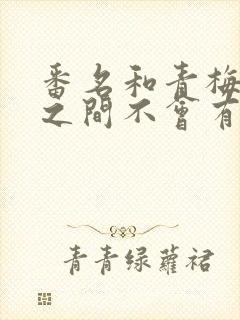 番名和青梅
之間不會有
青青绿蘿裙